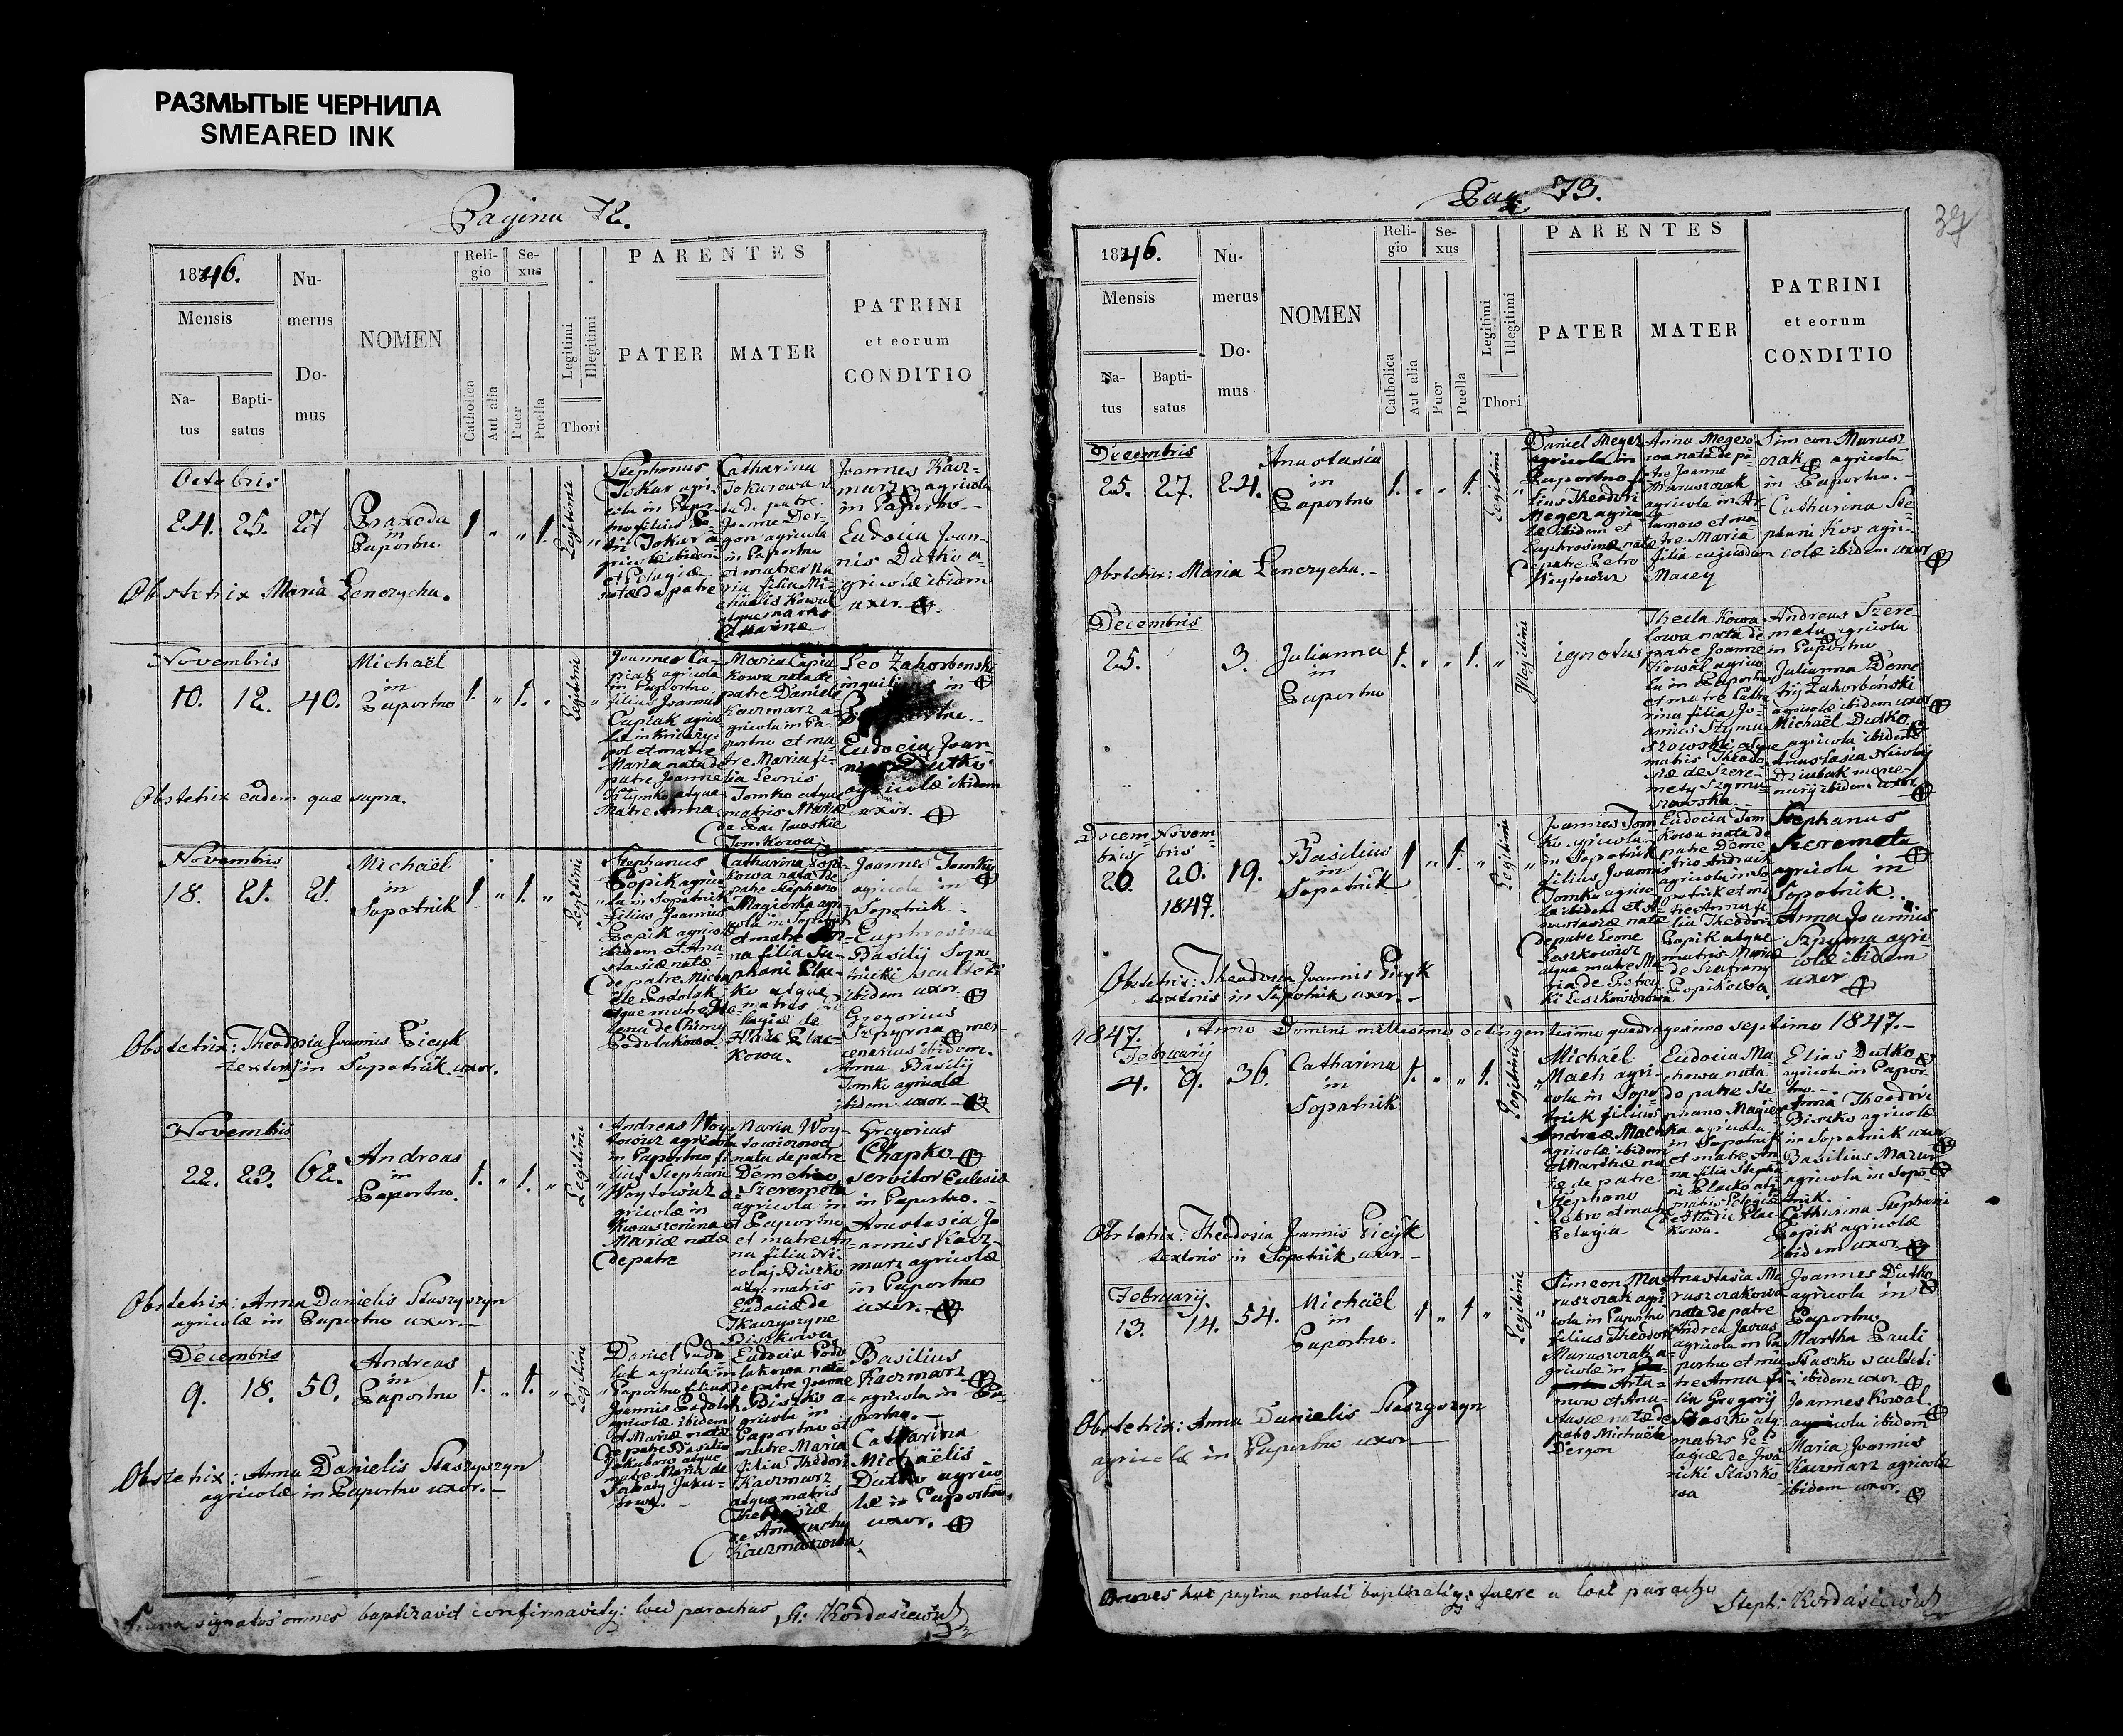 РАЗМЫТЫЕ ЧЕРНИЛА
SMEARED INK
Pagina 72.
1846.
Mensis
Na-
tus
Bapti-
satus
Nu-
merus
Do-
mus
NOMEN
Reli-
gio
Catholica
Aut alia
Se-
xus
Puer
Puella
Legitimi
Illegitimi
Thori
PARENTES
PATER
MATER
PATRINI
et eorum
CONDITIO
Octobris
24. 25. 27
Praxeda
in
Paportno
1 " " 1.
Legitimi
Stephanus
Tokar agri-
cola in Papor-
tno filius
Catharina
Tokarowa
ta de patre
Joanne Der-
gon agricola
in Paportno
et matre Ma
ria filia Mi-
chaelis Kowal
atque matris
Joannes Kacz-
marz agricola
in Paportno
Eudocia Joan-
nis Dutko a-
gricolæ ibidem
uxor.
Obstetrix Maria Lenczycha.
Novembris
10. 12. 40.
Michaël
in
Paportno
1. " 1. "
Legitimi
Joannes Ca-
piak agricola
in Paportno
filius Joannis
Capiak agrico
Maria nata de
patre Joanne
Klymko atque
Matre Anna
Maria Capia
kowa nata de
patre Daniele
Kaczmarz a-
gricola in Pa-
portno et ma-
tre Maria fi-
lia Leonis
Tomko atque
matris Mariæ
Tomkowa
Leo Zahorbenski
in
Eudocia Joan-
nis Dutko
agricolæ ibidem
uxor.
Obstetrix eadem quæ supra.
Novembris
18. 21. 21.
Michaël
in
Sopotnik
1 " 1. "
Legitimi
Stephanus
Popik agrico
la in Sopotnik
filius Joannis
Popik agricolæ
ibidem et Ana
stasiæ natæ
de patre Micha
ële Podolak
atque matre
Podolakowa
Catharina Popi-
kowa nata de
patre Stephano
Magierka agri
cola in Sopotnik
et matre An-
na filia Ste-
phani Plac-
ko atque
matris Pe
lagiæ de
Plac-
kowa.
Joannes Tomko
agricola in
Sopotnik
Euphrosina
Basilij Sopo-
tnicki sculteti
ibidem uxor
Gregorius
Szpyrna mer-
cenarius ibidem.
Anna Basilij
Tomko agricolæ
ibidem uxor
Obstetrix: Theodosia Joannis Picyk
textoris in Sopotnik uxor.
Novembris
22. 23. 62.
Andreas
in
Paportno.
1. " 1. "
Legitimi
Andreas Woy-
towicz agricola
in Paportno fi
lius Stephani
Woytowicz a-
gricolæ in
Kwaszenina et
Mariæ natæ
de patre
Maria Woy-
towiczowa
nata de patre
Demetrio
Szeremeta
agricola in
Paportno
et matre An-
na filia Ni-
colaj Biszko
atq: matris
Eudociæ de
Tkaczyszyne
Biszkowa
Gregorius
Chapko
servitor Eclesiæ
in Paportno.
Anastasia Jo
annis Kacz-
marz agricolæ
in Paportno
uxor.
Obstetrix: Anna Danielis Staszyszyn
agricolæ in Paportno uxor.
Decembris
9. 18. 50.
Andreas
in
Paportno
1. " 1. "
Legitimi
Daniel Podo
lak agricola in
Paportno filius
Joannis Podolak
agricolæ ibidem
et Mariæ natæ
de patre Basilio
Jakubow atque
matre Maria de
Eudocia Podo
lakowa nata
de patre Joanne
Biszko a-
gricola in
Paportno et
matre Maria
filia Thedori
Kaczmarz
atque matris
Kaczmarzowa
Basilius
Kaczmarz
agricola in Pa-
portno.
Catharina
Michaëlis
Dutko agrico
læ in Paportno
uxor.
Obstetrix: Anna Danielis Staszyszyn
agricolæ in Paportno uxor.
signatos omnes baptizavit confirmavitq: loci parochus St: Kordasiewicz
Pag: 73.
39
1846.
Mensis
Na-
tus
Bapti-
satus
Nu-
merus
Do-
mus
NOMEN
Reli-
gio
Catholica
Aut alia
Se-
xus
Puer
Puella
Legitimi
Illegitimi
Thori
PARENTES
PATER
MATER
PATRINI
et eorum
CONDITIO
Decembris
25. 27. 24.
Anastasia
in
Paportno
1. " " 1.
Legitimi
Daniel Megez
agricola in
Paportno fi-
lius Theodori
Megez agrico
læ ibidem et
Euphrosinæ natæ
patre Petro
Anna Megezo
wa nata de pa-
tre Joanne
Maruszczak
agricola in Ar-
tamow et ma
tre Maria
filia cujusdam
Macey
Simeon Marusz
czak agricola
in Paportno.
Catharina Ste-
phani Kos agri-
colæ ibidem uxor
Obstetrix: Maria Lenczycha.
Decembris
25. 3.
Julianna
in
Paportno
1. " " 1. "
Illegitimi
ignotus
Thecla Kowa
lowa nata de
patre Joanne
Kowal agrico
la in Paportno
et matre Catha
rina filia Jo-
annis Szyma
szowski atque
matris Theodo
siæ de Szere-
mety Szyma
szowska.
Andreas Szere-
meta agricola
in Paportno
Julianna Deme
trij Zahorbenski
agricolæ ibidem uxor
Michaël Dutko
agricola ibidem
Anastasia Nicolaj
Dziubak merce-
narij ibidem uxor
Decem
bris
Novem
bris
26. 20. 19.
1847.
Basilius
in
Sopotnik
1 " 1. "
Legitimi
Joannes Tom
ko agricola
in Sopotnik
filius Joannis
Tomko agrico
læ ibidem et A-
nastasiæ natæ
de patre Leone
Leszkowicz
atque matre Ma
ria de
Leszkowiczowa
Eudocia Tom
kowa nata de
patre Deme-
trio Andruch
agricola in So
potnik et ma
tre Anna fi
lia Theodori
Popik atque
matris Mariæ
de Szafrany
Popikowa.
Stephanus
Szeremeta
agricola in
Sopotnik.
Anna Joannis
Szpyrna agri-
colæ ibidem
uxor
Obstetrix: Theodosia Joannis Picyk
textoris in Sopotnik uxor.
1847. Anno Domini millesimo octingentesimo quadragesimo septimo 1847.
Februarij
4. 9. 36.
Catharina
in
Sopotnik
1. " " 1.
Legitimi
Michaël
Mach agri-
cola in Sopo-
tnik filius
Andreæ Mach
agricolæ ibidem
et Marthæ na-
tæ de patre
Stephano
Petro et matre
Pelagia
Eudocia Ma
chowa nata
de patre Ste
phano Magier
ka agricola
in Sopotnik
et matre An
na filia Stepha
ni Placko atq:
matris Pelagiæ
Plac
kowa.
Elias Dutko
agricola in Papor-
tno.
Anna Theodori
Biszko agricolæ
in Sopotnik uxor
Basilius Mazur
agricola in Sopo-
tnik.
Catharina Stephani
Popik agricolæ
ibidem uxor
Obstetrix: Theodosia Joannis Picyk
textoris in Sopotnik uxor.
Februarij
13. 14. 54.
Michaël
in
Paportno.
1 " 1 "
Legitimi
Simeon Ma
ruszczak agri
cola in Paportno
filius Theodori
Maruszczak a-
gricolæ in
Arta-
mow et Ana-
stasiæ natæ de
patre Michaële
Dergon
Anastasia Ma
ruszczakowa
nata de patre
Andrea Janus
agricola in Pa
portno et ma
tre Anna fi-
lia Gregorij
Staszko atq:
matris Pe
lagiæ de Iwa
nicki Staszko
wa
Joannes Dutko
agricola in
Paportno
Martha Pauli
Staszko sculteti
ibidem uxor
Joannes Kowal
agricola ibidem
Maria Joannis
Kaczmarz agricolæ
ibidem uxor.
Obstetrix: Anna Danielis Staszyszyn
agricolæ in Paportno uxor
Omnes hac pagina notati baptizatiq: fuere a loci parocho Steph: Kordasiewicz